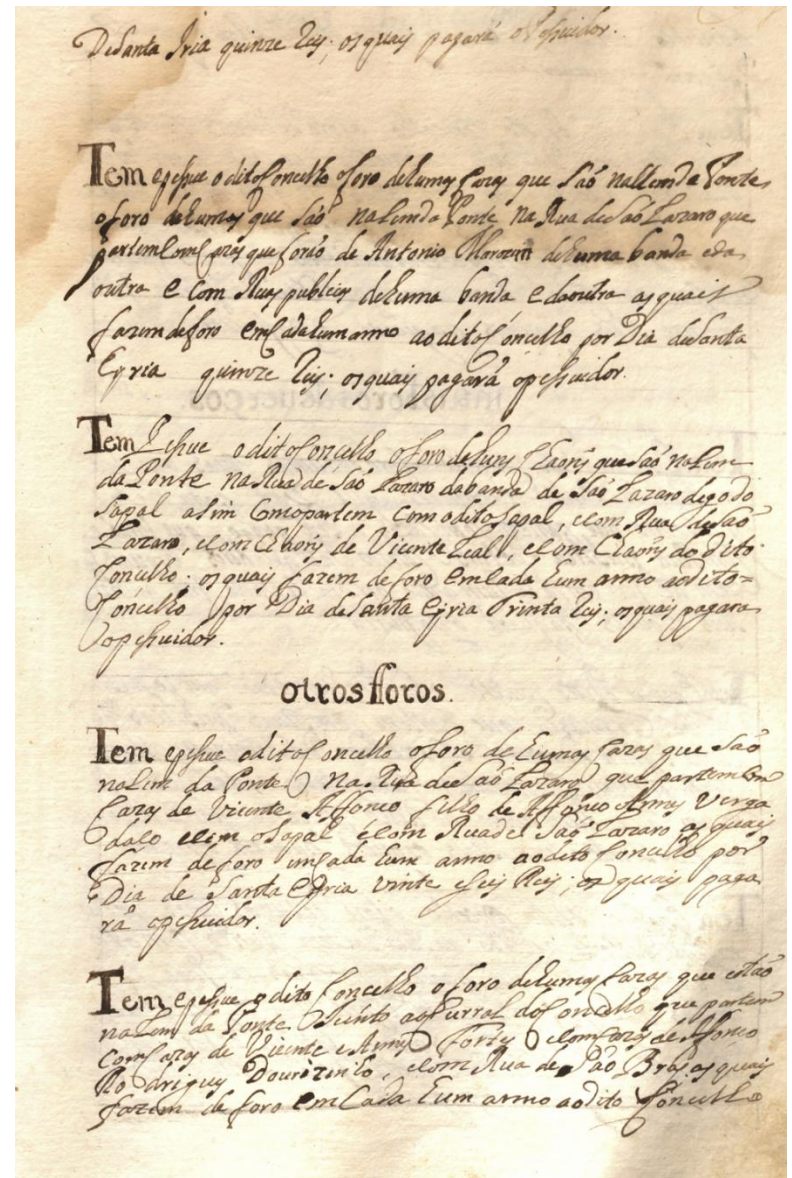 DeSanta Iria quinze Reis; os quais pagará o Pesuidor.
Tem e pesue o dito Concelho o foro de humas Cazas que Saõ nallemda Ponte,
o foro de humas que Saõ, nalemda Ponte na Rua de Saõ Lazaro que
partem Com Cazas que foraõ de Antonio de huma banda e da
outra e com Ruas publicas de huma banda e da outra as quais
fazem de foro em Cada hum anno ao dito Concelho por Dia de Santa
Eyria quinze Reis; os quais pagará o pesuidor.
Tem Pesue o dito Concelho o foro de huns Chaons que saõ nalem
da Ponte na Rua de Saõ Lazaro da banda de Saõ Lazaro
Sapal asim Como partem Com o dito Sapal, e Com Rua de Saõ
Lazaro, e Com Chaons de Vicente Leal, e Com Chaons do dito
Concelho; os quais fazem de foro em Cada hum anno ao dito=
Concelho por Dia de Santa Eyria Trinta Reis; os quais pagara
o pesuidor.
otros fforos.
Tem e pesue o dito Concelho o foro de humas Cazas que Saõ
nalem da Ponte na Rua de Saõ Lazaro que partem Com
Cazas de Vicente Affonco filho de Affonco Annes Verga
dalo e Com o Sapal e Com Rua de Saõ Lazaro as quais
fazem de foro im Cada hum anno ao dito Concelho por
Dia de Santa Eyria vinte e seis Reis; os quais paga
rá o pesuidor.
Tem e pesue o dito Concelho o foro de humas Cazas que estão
nalem da Ponte Junto ao Curral do Concelho que partem
Com Cazas de Vicente Annes e Com Cazas de Affonco
Rodrigues, e Com Rua de São Bras as quais
fazem de foro em Cada hum anno ao dito Concelho